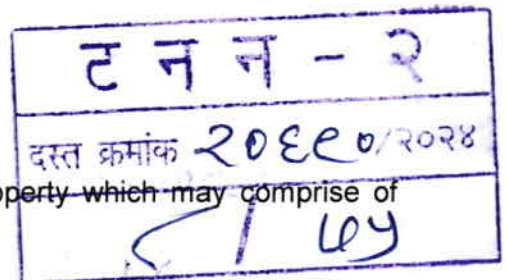 ट न न - २
दस्त क्रमांक २०६९०/२०२४
operty which may comprise of
८ / ७५